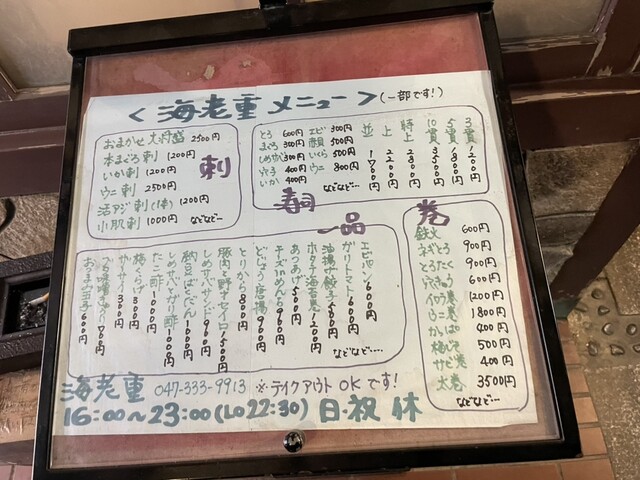 <海老重メニュー>(一部です!)
刺
おまかせ 大将盛 2500円
本まぐろ刺 1200円
いか刺 1200円
ウニ刺 2500円
活アジ刺(1本) 1200円
小肌刺 1000円
などなど…
寿司
とろ 600円
まぐろ 300円
しめサバ 300円
穴子 400円
いか 400円
エビ 300円
赤貝 500円
いくら 500円
ウニ 800円
などなど…
並
上
特上
10貫
5貫
3貫
一品
エビパン 600円
ガリトマト 600円
油揚げ餃子 500円
ホタテ海苔 1200円
あつあげ 500円
チーズinめんち 960円
どじょう唐揚 900円
とりから 800円
しめサバサンド 960円
納豆ばくだん 1000円
しめサバガリ酢 1000円
たこ酢 1000円
梅くらげ 300円
サバサイ 300円
おつまみ玉子 600円
などなど…
巻
鉄火 600円
ネギとろ 900円
とろたく 900円
穴きゅう 600円
イクラ巻 1200円
ウニ巻 1800円
かんぴょう巻 400円
梅しそ巻 500円
サビ巻 400円
太巻 3500円
などなど…
海老重 047-333-9913 ※テイクアウトOKです!
16:00~23:00(LO22:30) 日・祝 休